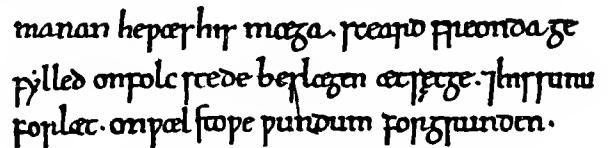 manan heƿæs his mæga. sceard freonda ge
fẏlled onfolc stede beslægen ætsęcge. ⁊his sunu
forlæt. onƿæl stoƿe ƿundum forgrunden.